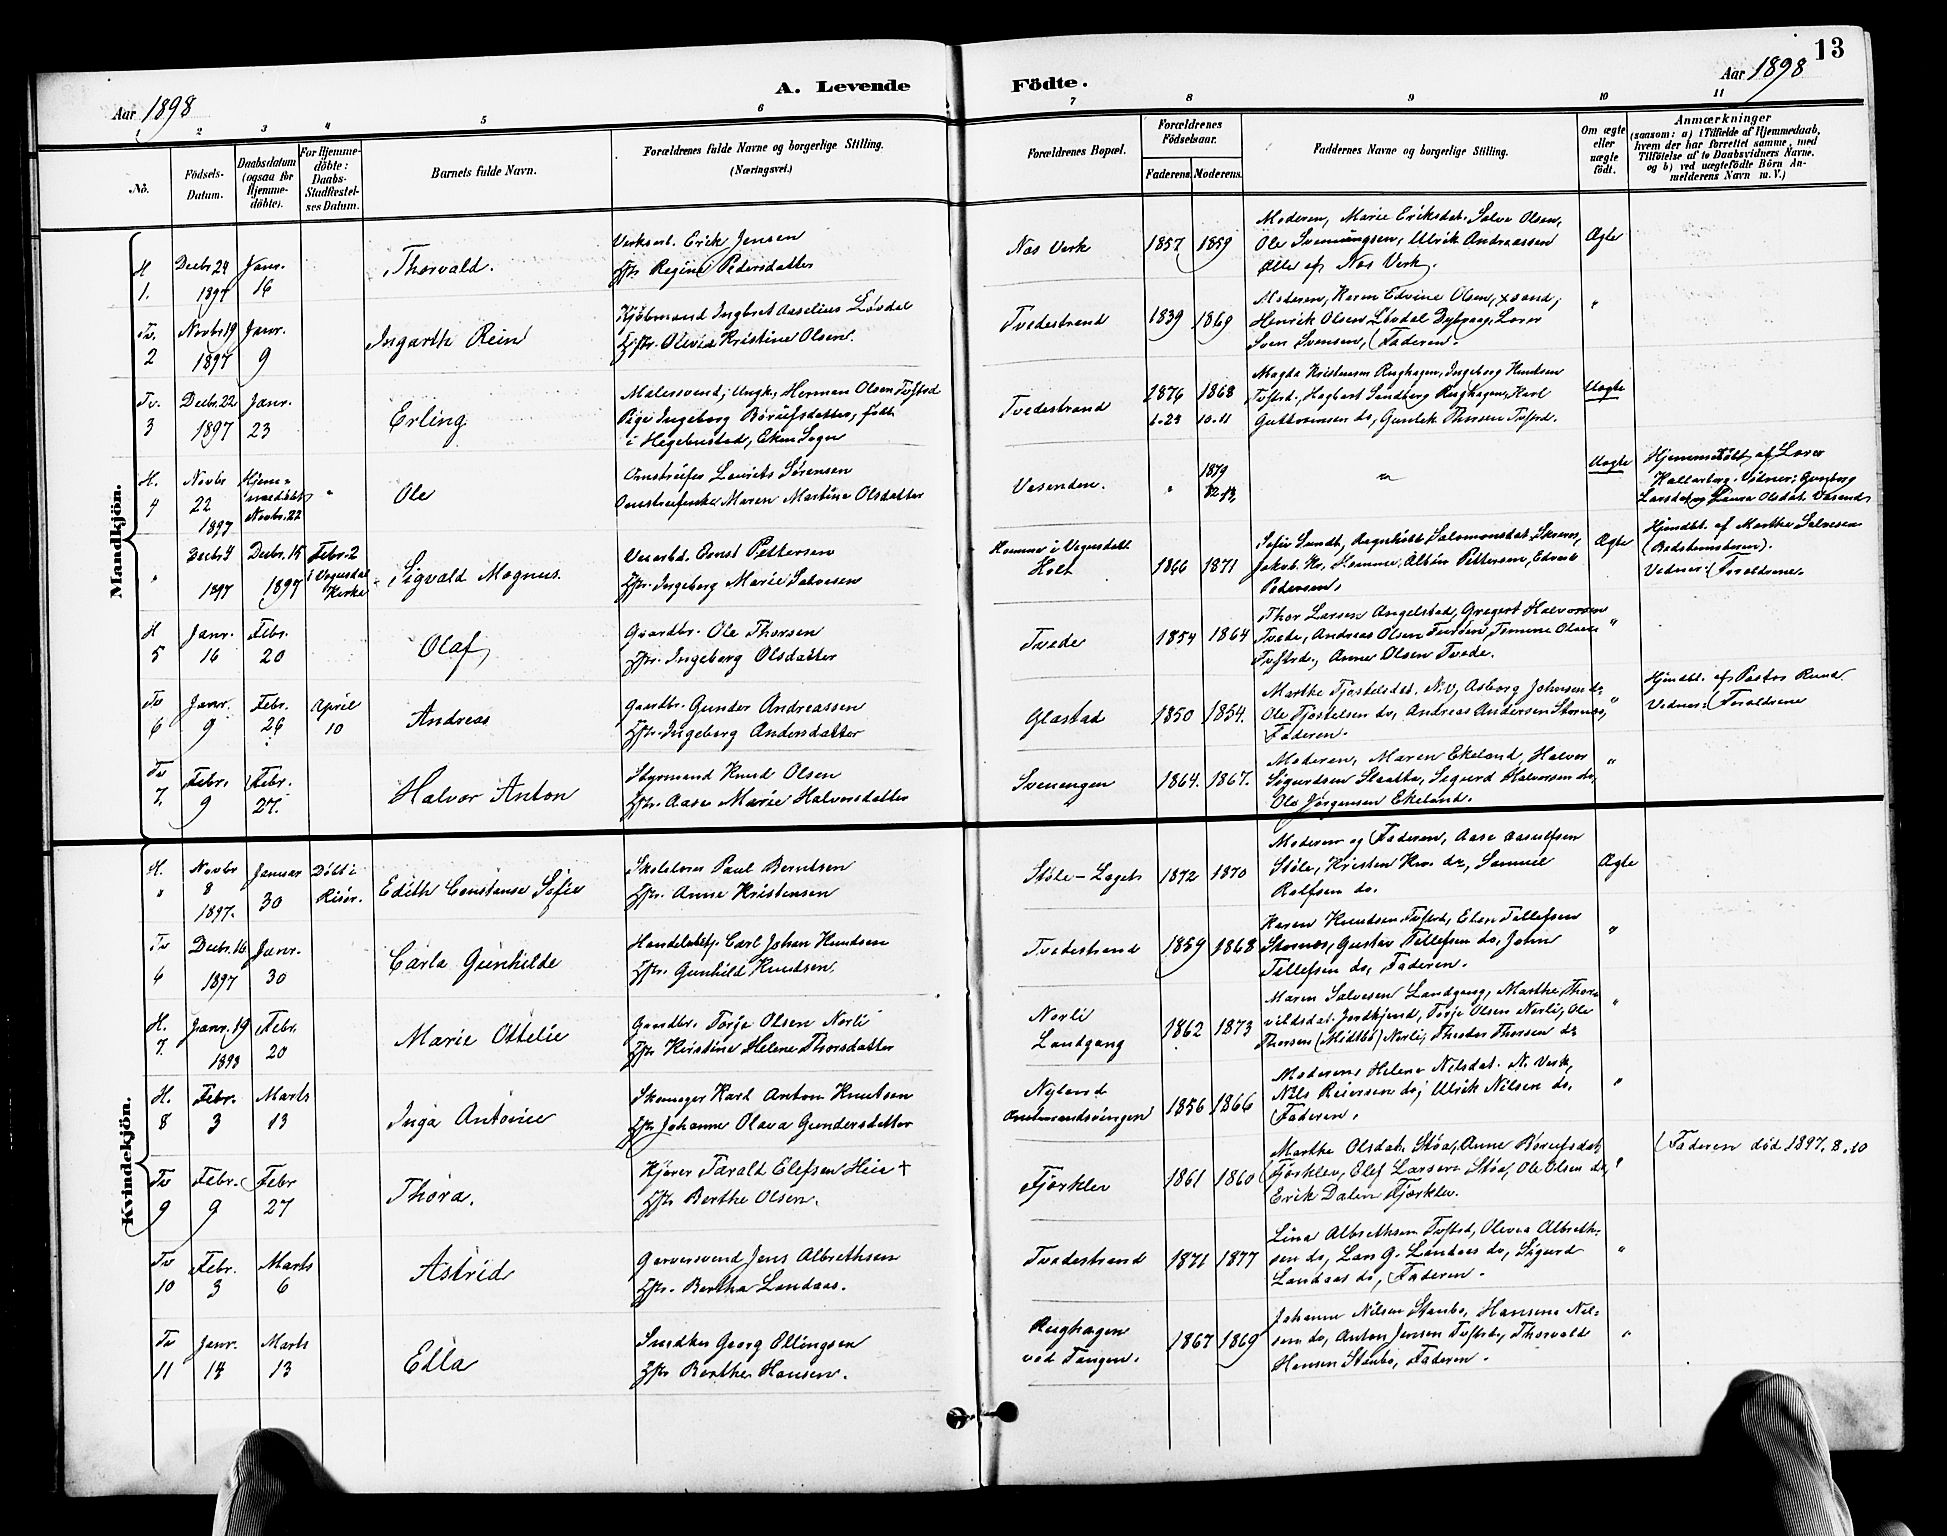 13
Aar 1898
A. Levende
Födte.
Aar 1898
1 2 3 4 5 6 7 8 9 10 11
No.
Födsels-Datum.
Daabsdatum (ogsaa for Hjemme-döbte).
For Hjemme-döbte: Daabs-Stadfæstel-ses Datum.
Barnets fulde Navn.
Forældrenes fulde Navne og borgerlige Stilling.
(Næringsvei.)
Forældrenes Bopæl.
Forældrenes Födselsaar.
Faderens. Moderens.
Faddernes Navne og borgerlige Stilling.
Om ægte eller uægte födt.
Anmærkninger
(saasom: a) i Tilfælde af Hjemmedaab, hvem der har forrettet samme, med Tilföielse af to Daabsvidners Navne, og b) ved uægtefödte Börn An-melderens Navn m. V.)
Mandkjön.
H 1. Decbr. 24 1897 Janr. 16
Thorvald.
Verksarb. Erik Jensen
Hstr. Regine Pedersdatter
Næs Verk 1857 1859
Moderen, Marie Eriksdat. Salve Olsen,
Ole Svenningsen, Ulrik Andreassen
Alle af Næs Verk.
Ægte
Tv. 2 Novbr. 19 1897 Janr. 9
Ingarth Rein
Kjöbmand Ingbret Aaselius Løvdal
Hstr. Olivia Kristine Olsen.
Tvedestrand 1839 1869
Moderen, Karen Edvine Olsen,
Henrik Olsen Løvdal Dybvaag, Lærer
Sven Svensen, Faderen.
"
Tv. 3 Decbr. 22 1897 Janr. 23
Erling
Malersvend, Ungk. Herman Olsen Tvftrd
Pige Ingeborg Börufsdatter, født
i Hegebustad, Eken Sogn
Tvedestrand 1876 1868
Magda Kristensen Rughagen, Ingeborg Knudsen
Tvftrd., Hagbart Sandberg Rughagen, Karl
Guttormsen do, Gunlek Thorsen Tvftrd.
Uægte
H. 4 Novbr 22 1897 Hjem-medöbt Novbr. 22 "
Ole
Omstreifer Laurits Sørensen
Omstreiferske Maren Martine Olsdatter
Vasenden. " 1879
"
Uægte
Hjemmedöbt af Lærer
Vidner: Gunborg
Larsdat. og Laura Olsdat. Vasend.
" Decbr 4 1897 Decbr. 15 1897 Febr. 2 i Vegusdal Kirke
Sigvald Magnus.
Veiarbd. Ernst Pettersen
Hstr. Ingeborg Marie Salvesen
i Vegusdal. Holt 1866 1871
Sofie Sundt, Ragnhild Salomonsdat.
Jakob Albin Pettersen, Edvard
Pedersen.
Ægte
Hjmdbt. af Marthe Salvesen
(Bedstemoderen).
Vidner: Forældrene.
H 5 Janr. 16 Febr. 20
Olaf
Gaardbr. Ole Thorsen
Hstr. Ingeborg Olsdatter
Tvede 1854 1864
Thor Larsen Angelstad, Gregert Halvorsen
Tvede, Andreas Olsen Tomine Olsen
Tvftrd., Anne Olsen Tvede.
"
Tv 6 Janr. 9 Febr. 26 April 10
Andreas
Gaardbr. Gunder Andreassen
Hstr. Ingeborg Andersdatter
Glastad 1850 1854.
Marthe Tjostelsdat. N.V, Asborg Johnsen do
Ole Tjostelsen do, Andreas Andersen
Faderen.
"
Hjmdbt. af Pastor
Vidner: Forældrene
Tv 7. Febr. 9 Febr. 27.
Halvor Anton
Styrmand Knud Olsen
Hstr. Aase Marie Halvorsdatter
Svenengen 1864. 1867.
Moderen, Maren Ekeland, Halvor
Sigurdsen Sigurd Halvorsen do,
Ole Jørgensen Ekeland.
"
Kvindekjön.
H. " Novbr 8 1897. Januar 30 Döbt i Risør.
Edith Constanse Sofie
Skolelærer Paul Berntsen
Hstr. Anna Kristensen
Støle-Laget 1872 1870
Moderen og Faderen, Aase Aasulfsen
Støle, Kristen do, Samuel
Rolfsen do.
Ægte
Tv 6 Decbr. 16 1897 Janr. 30
Carla Gunhilde
Handelsbstj. Carl Johan Knudsen
Hstr. Gunhild Knudsen.
Tvedestrand 1859 1868
Karen Knudsen Tvftrd, Elen Tellefsen
Gustav Tellefsen do, John
Tellefsen do, Faderen.
"
H. 7. Janr. 19 1898 Febr. 20
Marie Ottelie
Gaardbr. Torje Olsen Norli
Hstr Kirstine Helene Thorsdatter
Norli Landgang 1862 1873
Maren Salvesen Landgang, Marthe Thor-
valdsdat. Torje Olsen Norli, Ole
Thorsen (Midtbø) Norli, Theodor Thorsen do
"
H. 8 Febr. 3 Marts 13
Inga Antonie
Skomager Karl Anton Knutsen
Hstr Johanne Olava Gundersdatter
Nyland 1856 1866
Moderen, Helene Nilsdat. N. Verk,
Nils Reiersen do, Ulrik Nilsen do,
Faderen.
"
Tv 9 Febr. 9 Febr 27
Thora.
Kjører Tarald Elefsen Heie +
Hstr Berthe Olsen.
Fjørklev 1861 1860
Marthe Olsdat. Støa, Anne Börufsdat
Fjørklev, Olef Larsen Støa, Ole Olsen do,
Erik Dalen Fjørklev.
"
Faderen död 1897. 8. 10
Tv 10 Febr. 3 Marts 6
Astrid
Garversvend Jens Albrethsen
Hstr. Bertha Landaas.
Tvedestrand 1871 1877
Lina Albrethsen Tvftrd, Olivia Albreth-
sen do, Lars G. Landaas do, Sigurd
Landaas do, Faderen.
"
Tv 11 Janr. 14 Marts 13
Ella
Snedker Georg Ellingsen
Hstr Berthe Hansen.
Rughagen
ved Tangen. 1867 1869
Johanne Nilsen Staubø, Hansine Nil-
sen do, Anton Jensen Tvftrd, Thorvald
Hansen Staubø, Faderen.
"